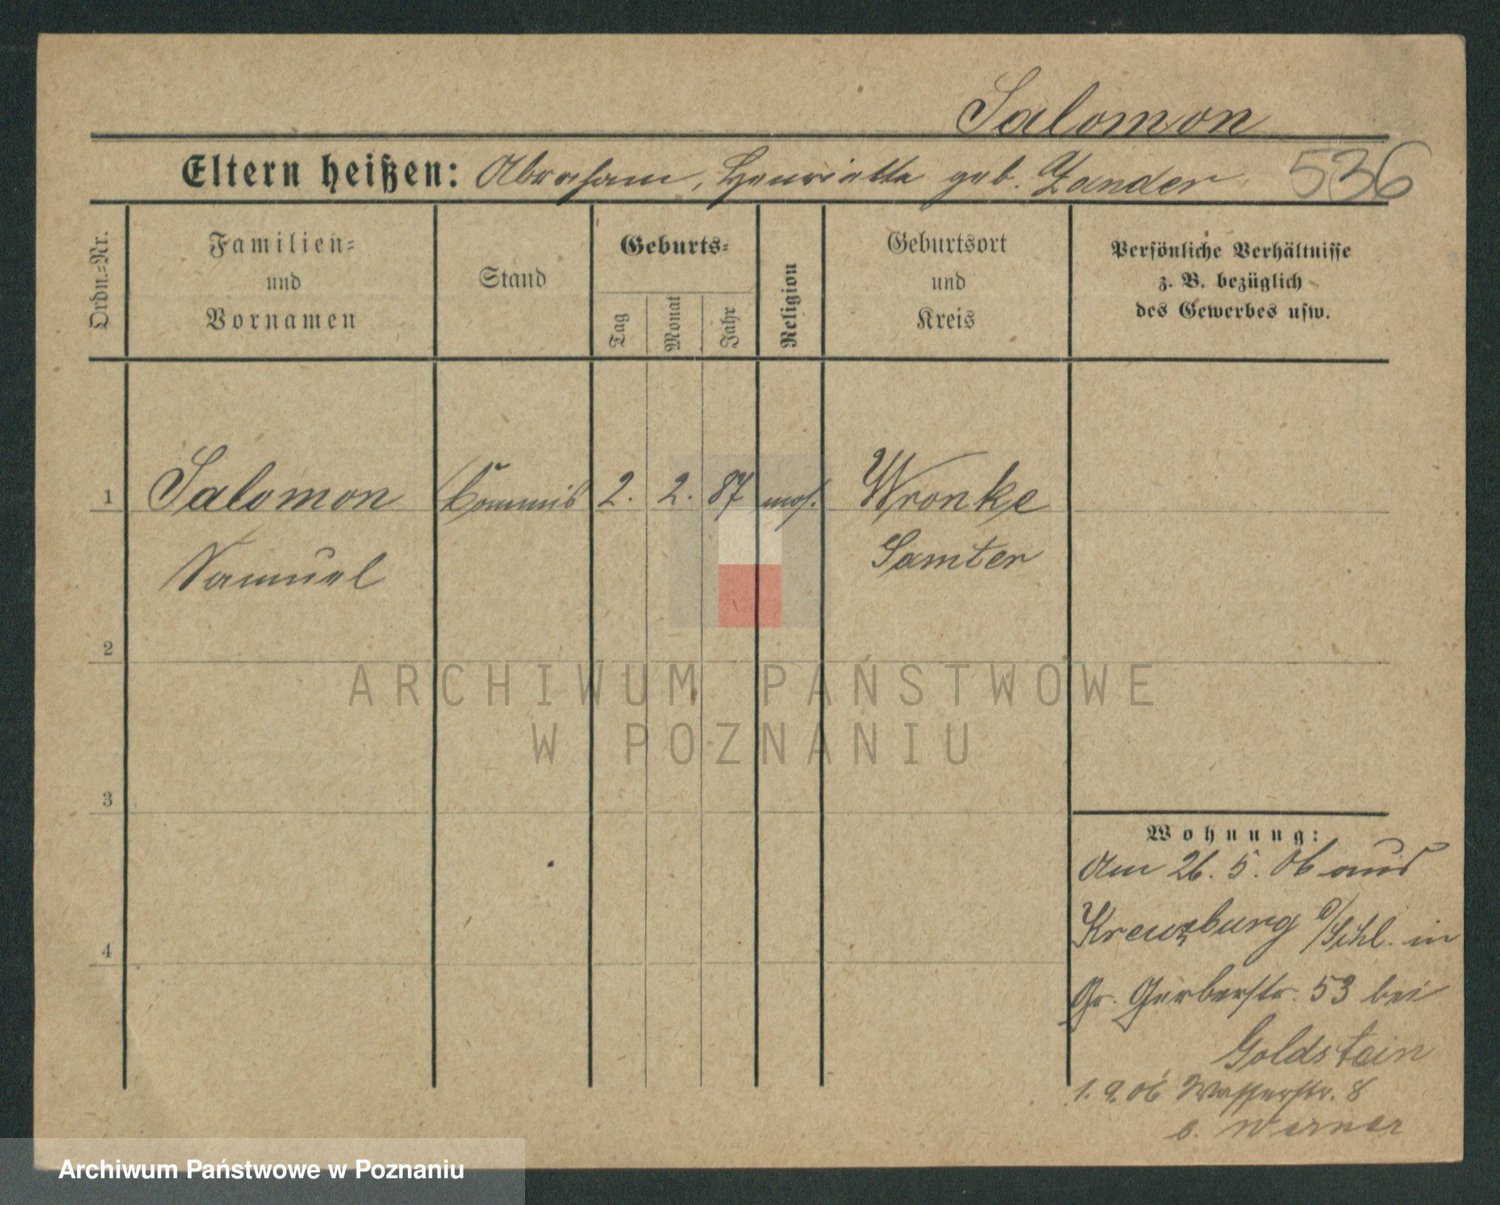 Salomon
Eltern heißen: Abraham, Henriette geb. Zander
536
Ordn.=Nr.
Familien=
und
Vornamen
Stand
Geburts=
Tag
Monat
Jahr
Religion
Geburtsort
und
Kreis
Persönliche Verhältnisse
z. B. bezüglich
des Gewerbes usw.
1
Salomon Commis 2. 2. 87 mos. Wronke
Samuel Samter
2
3
4
Wohnung:
Am 26. 5. 06 aus
Kreuzburg O/Schl. in
Gr. Gerberstr. 53 bei
Goldstein
1. 9. 06 Wasserstr. 8
b. Werner
ARCHIWUM PAŃSTWOWE
W POZNANIU
Archiwum Państwowe w Poznaniu